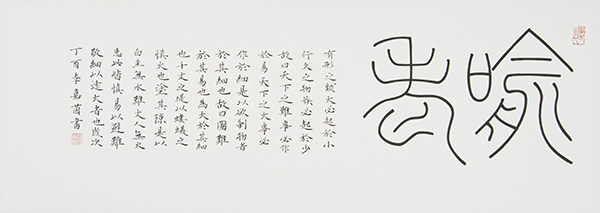 喻老
有形之類大必起於小
行久之物族必起於少
故曰天下之難事必作
於易天下之大事必
作於細是以欲制物者
於其細也故曰圖難
於其易也為大於其細
也千丈之堤以螻蟻之
慎火也塗其隙是以
白圭無水難丈人無火
患此皆慎易以避難
敬細以遠大者也歲次
丁酉李嘉茵書